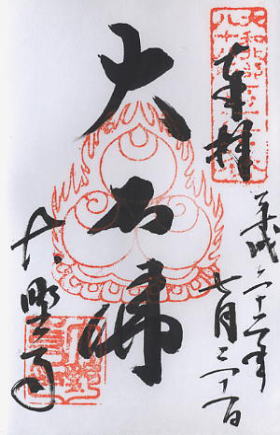 奉拝
平成二十二年
七月三十一日
大石佛
大野寺